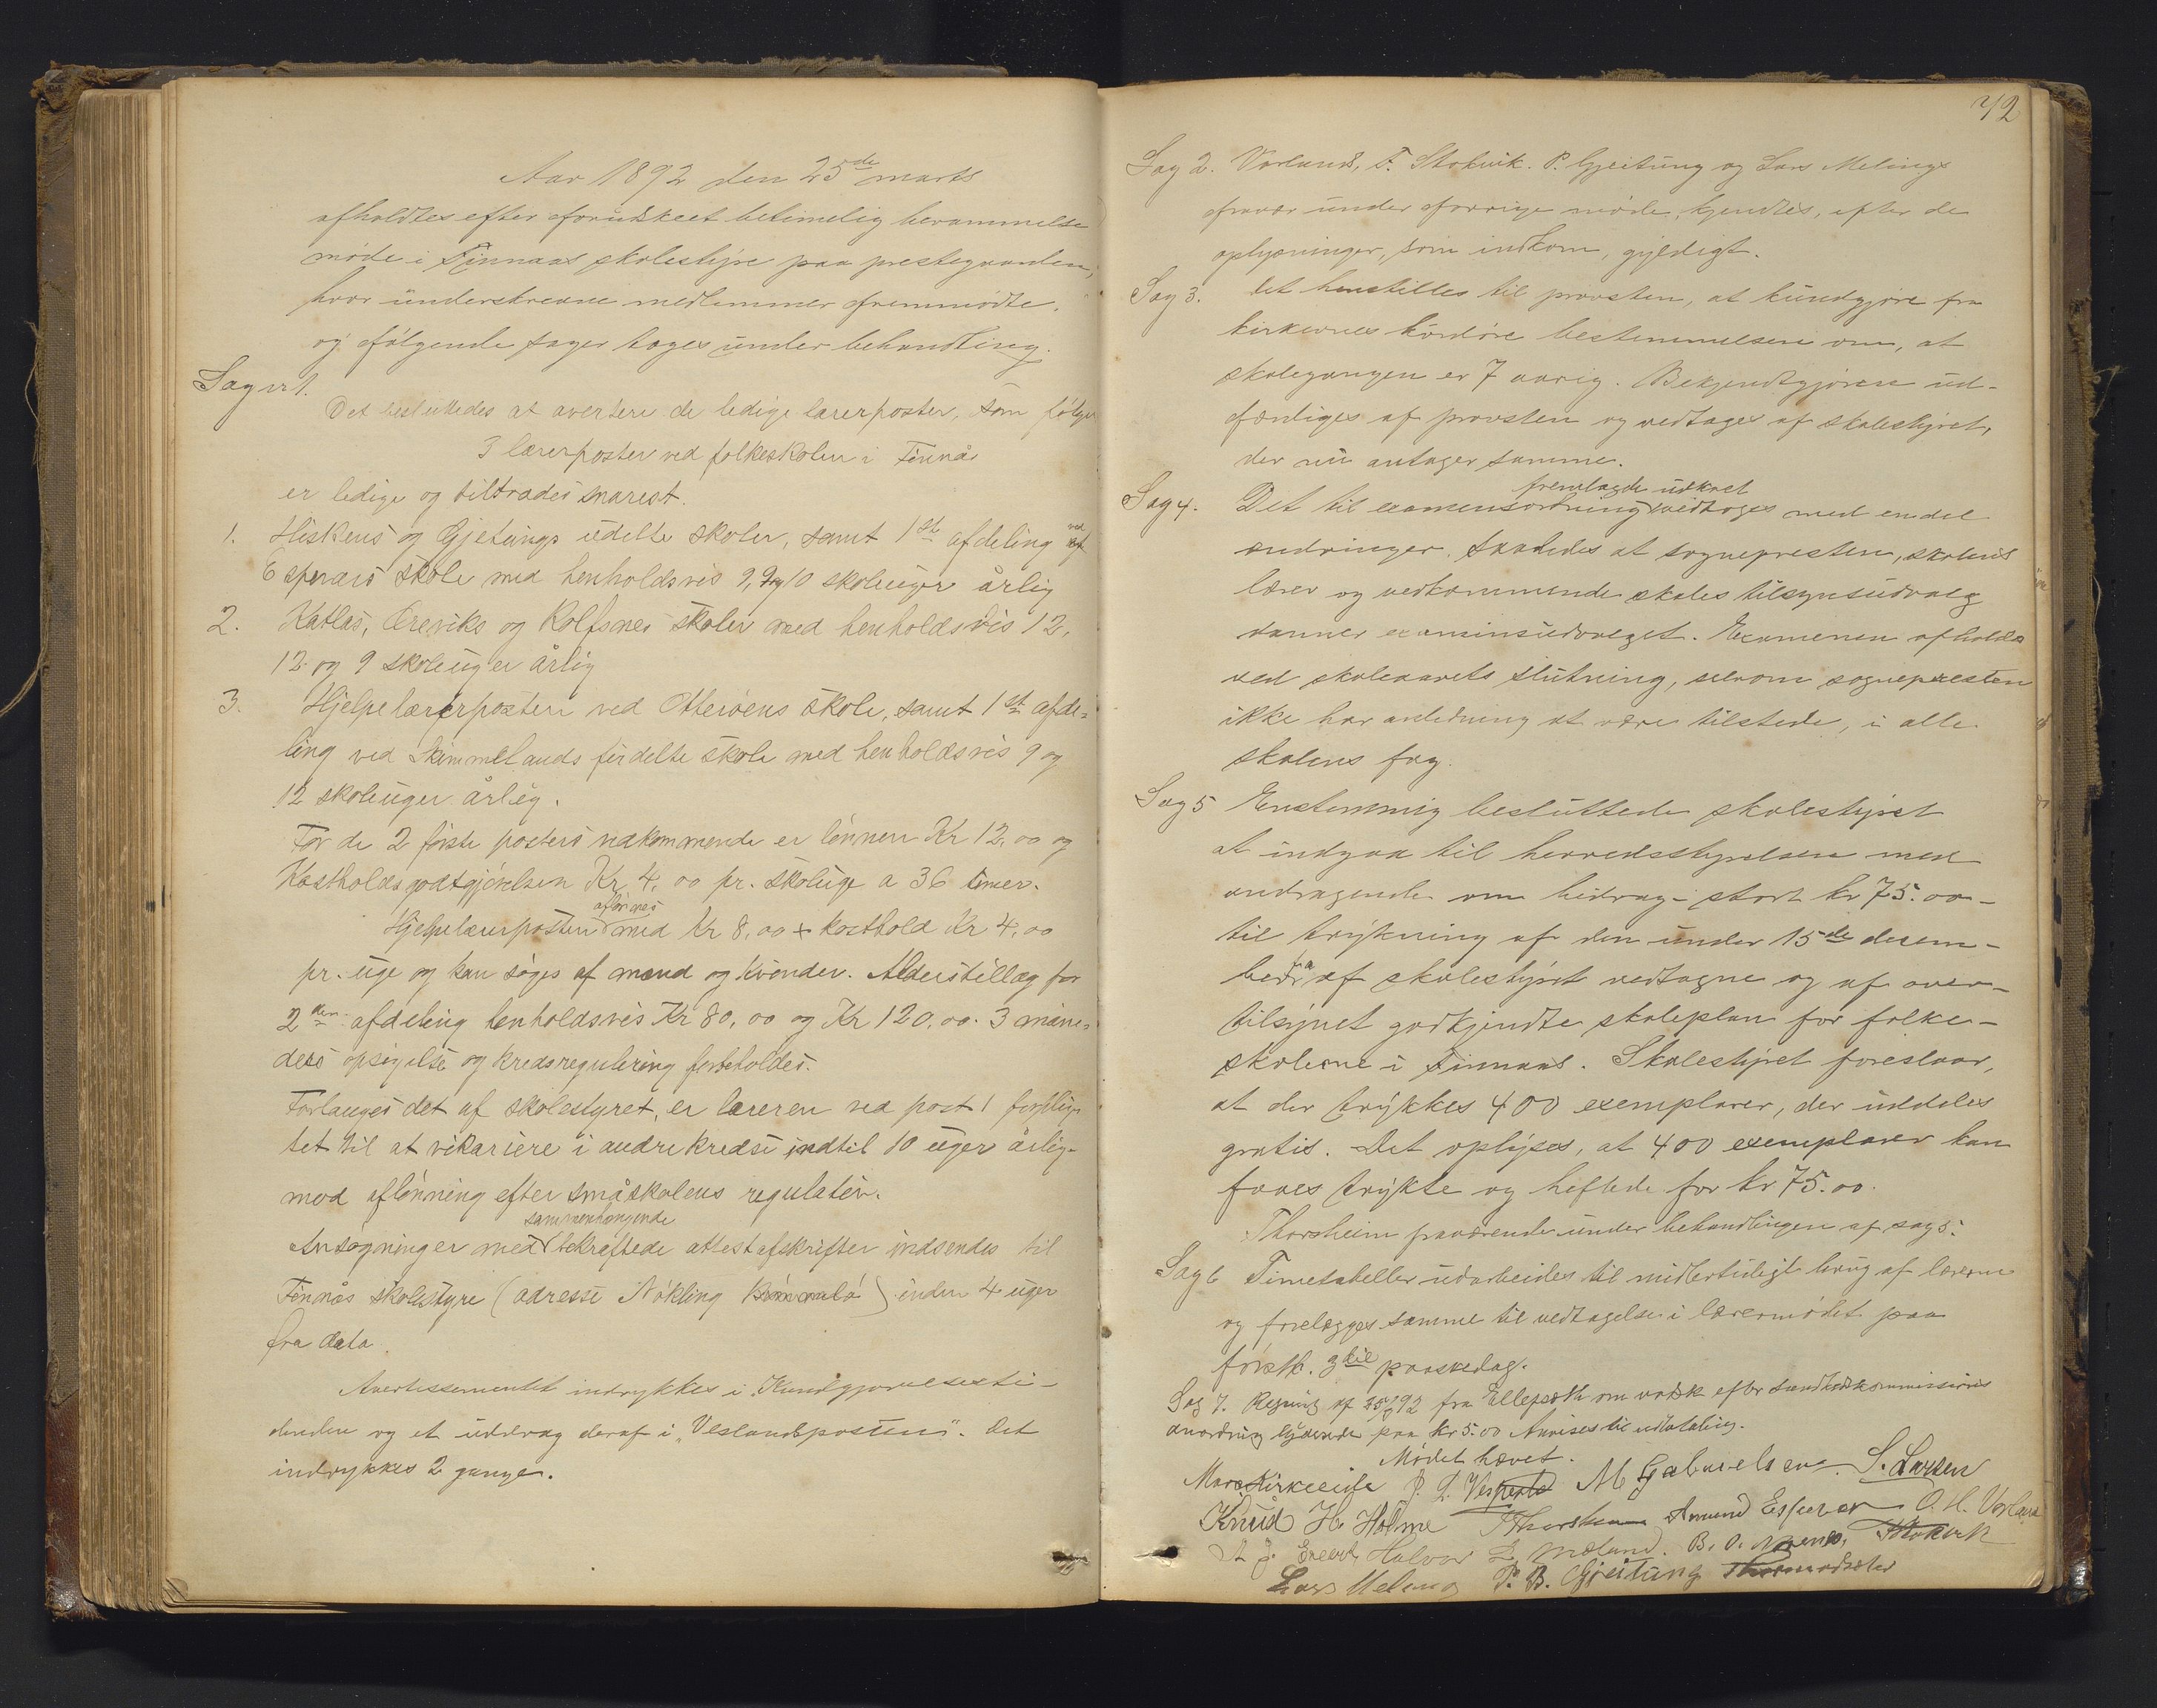 Aar 1892 den 25de marts
afholdtes efter forudskeet betimelig berammelse
møde i Finnaas skolestyre paa prestegaarden,
hvor underskrevne medlemmer fremmødte,
og følgende sager toges under behandling.
Sag nr 1.
Det besluttedes at avertere de ledige lærerposter, som følger
3 lærerposter ved folkeskolen i Finnås
er ledige og tiltrædes snarest.
1. Hiskens og Gjetungs udelte skoler, samt 1ste afdeling ved
Espeværs skole med henholdsvis 9, 9 og 10 skoleuger årlig
2. Katlas, Øreviks og Rolfsnes skoler med henholdsvis 12,
12 og 9 skoleuger årlig
3. Hjelpelærerposten ved Otterøens skole, samt 1ste afde-
ling ved Skimmelands firdelte skole med henholdsvis 9 og
12 skoleuger årlig.
For de 2 første posters vedkommende er lønnen Kr 12,00 og
Kostholdsgodtgjørelsen Kr 4,00 pr. skoleuge a 36 timer.
aflønnes
Hjelpelærerposten med Kr 8,00 + kosthold Kr 4,00
pr. uge og kan søges af mænd og kvinder. Alderstillæg for
2den afdeling henholdsvis Kr 80,00 og Kr 120,00. 3 måne-
ders opsigelse og kredsregulering forbeholdes.
Forlanges det af skolestyret, er læreren ved post 1 forplig-
tet til at vikariere i andre kredse indtil 10 uger årlig
mod aflønning efter småskolens regulativ.
sammenhængende
Ansøgninger med bekræftede attestafskrifter indsendes til
Finnås skolestyre (adresse Nøkling ) inden 4 uger
fra dato.
Avertissementet indrykkes i "Kundgjørelsesti-
dende og et uddrag deraf i "Vestlandsposten". Det
indrykkes 2 gange.
72
Sag 2. Vorland, T. Stokvik. P. Gjeitung og Lars Melings
fravær under forrige møde, kjendtes, efter de
oplysninger, som indkom, gyldigt.
Sag 3. Det henstilles til provsten, at kundgjøre fra
kirkernes kordøre bestemmelsen om, at
skolegangen er 7 aarig. Bekjendtgjøren ud-
færdiges af provsten og vedtages af skolestyret,
der nu antager samme.
fremlagde udkast
Sag 4. Det til examensordning vedtoges med endel
ændringer. Saaledes at sognepresten, skolens
lærer og vedkommende skoles tilsynsudvalg
danner examensudvalget. Examenen afholdes
ved skoleaarets slutning, selvom sognepresten
ikke har anledning at være tilstede, i alle
skolens fag.
Sag 5 Enstemmig besluttede skolestyret
at indgaa til herredsstyrelsen med
andragende om bidrag - stort kr 75.00 -
til trykning af den under 15de desem-
ber f.a. af skolestyret vedtagne og af over-
tilsynet godkjendte skoleplan for folke-
skolerne i Finnaas. Skolestyret foreslaar,
at der trykkes 400 exemplarer, der uddeles
gratis. Det oplyses, at 400 exemplarer kan
faaes trykte og heftede for kr 75.00.
Thorsheim fraværende under behandlingen af sag 5.
Sag 6 Timetabeller udarbeides til midlertidigt brug af lærerne
og forelægges samme til vedtagelse i lærermødet paa
førstk. 3die paaskedag.
Sag 7. Regning af 25/3 92 fra Ellefsæth om vadsk efter sundhedskommissionens
anordning lydende paa kr 5.00 Anvises til udbetaling.
Mødet hævet.
Mons Kirkeeide M Gabrielsen. S. Larsen
Knud H. Holme Thorsheim Amund Espevær O. H. Vorland
Halvor L. Mæland. B. O. T Stokvik
Lars Meling P. B. Gjeitung